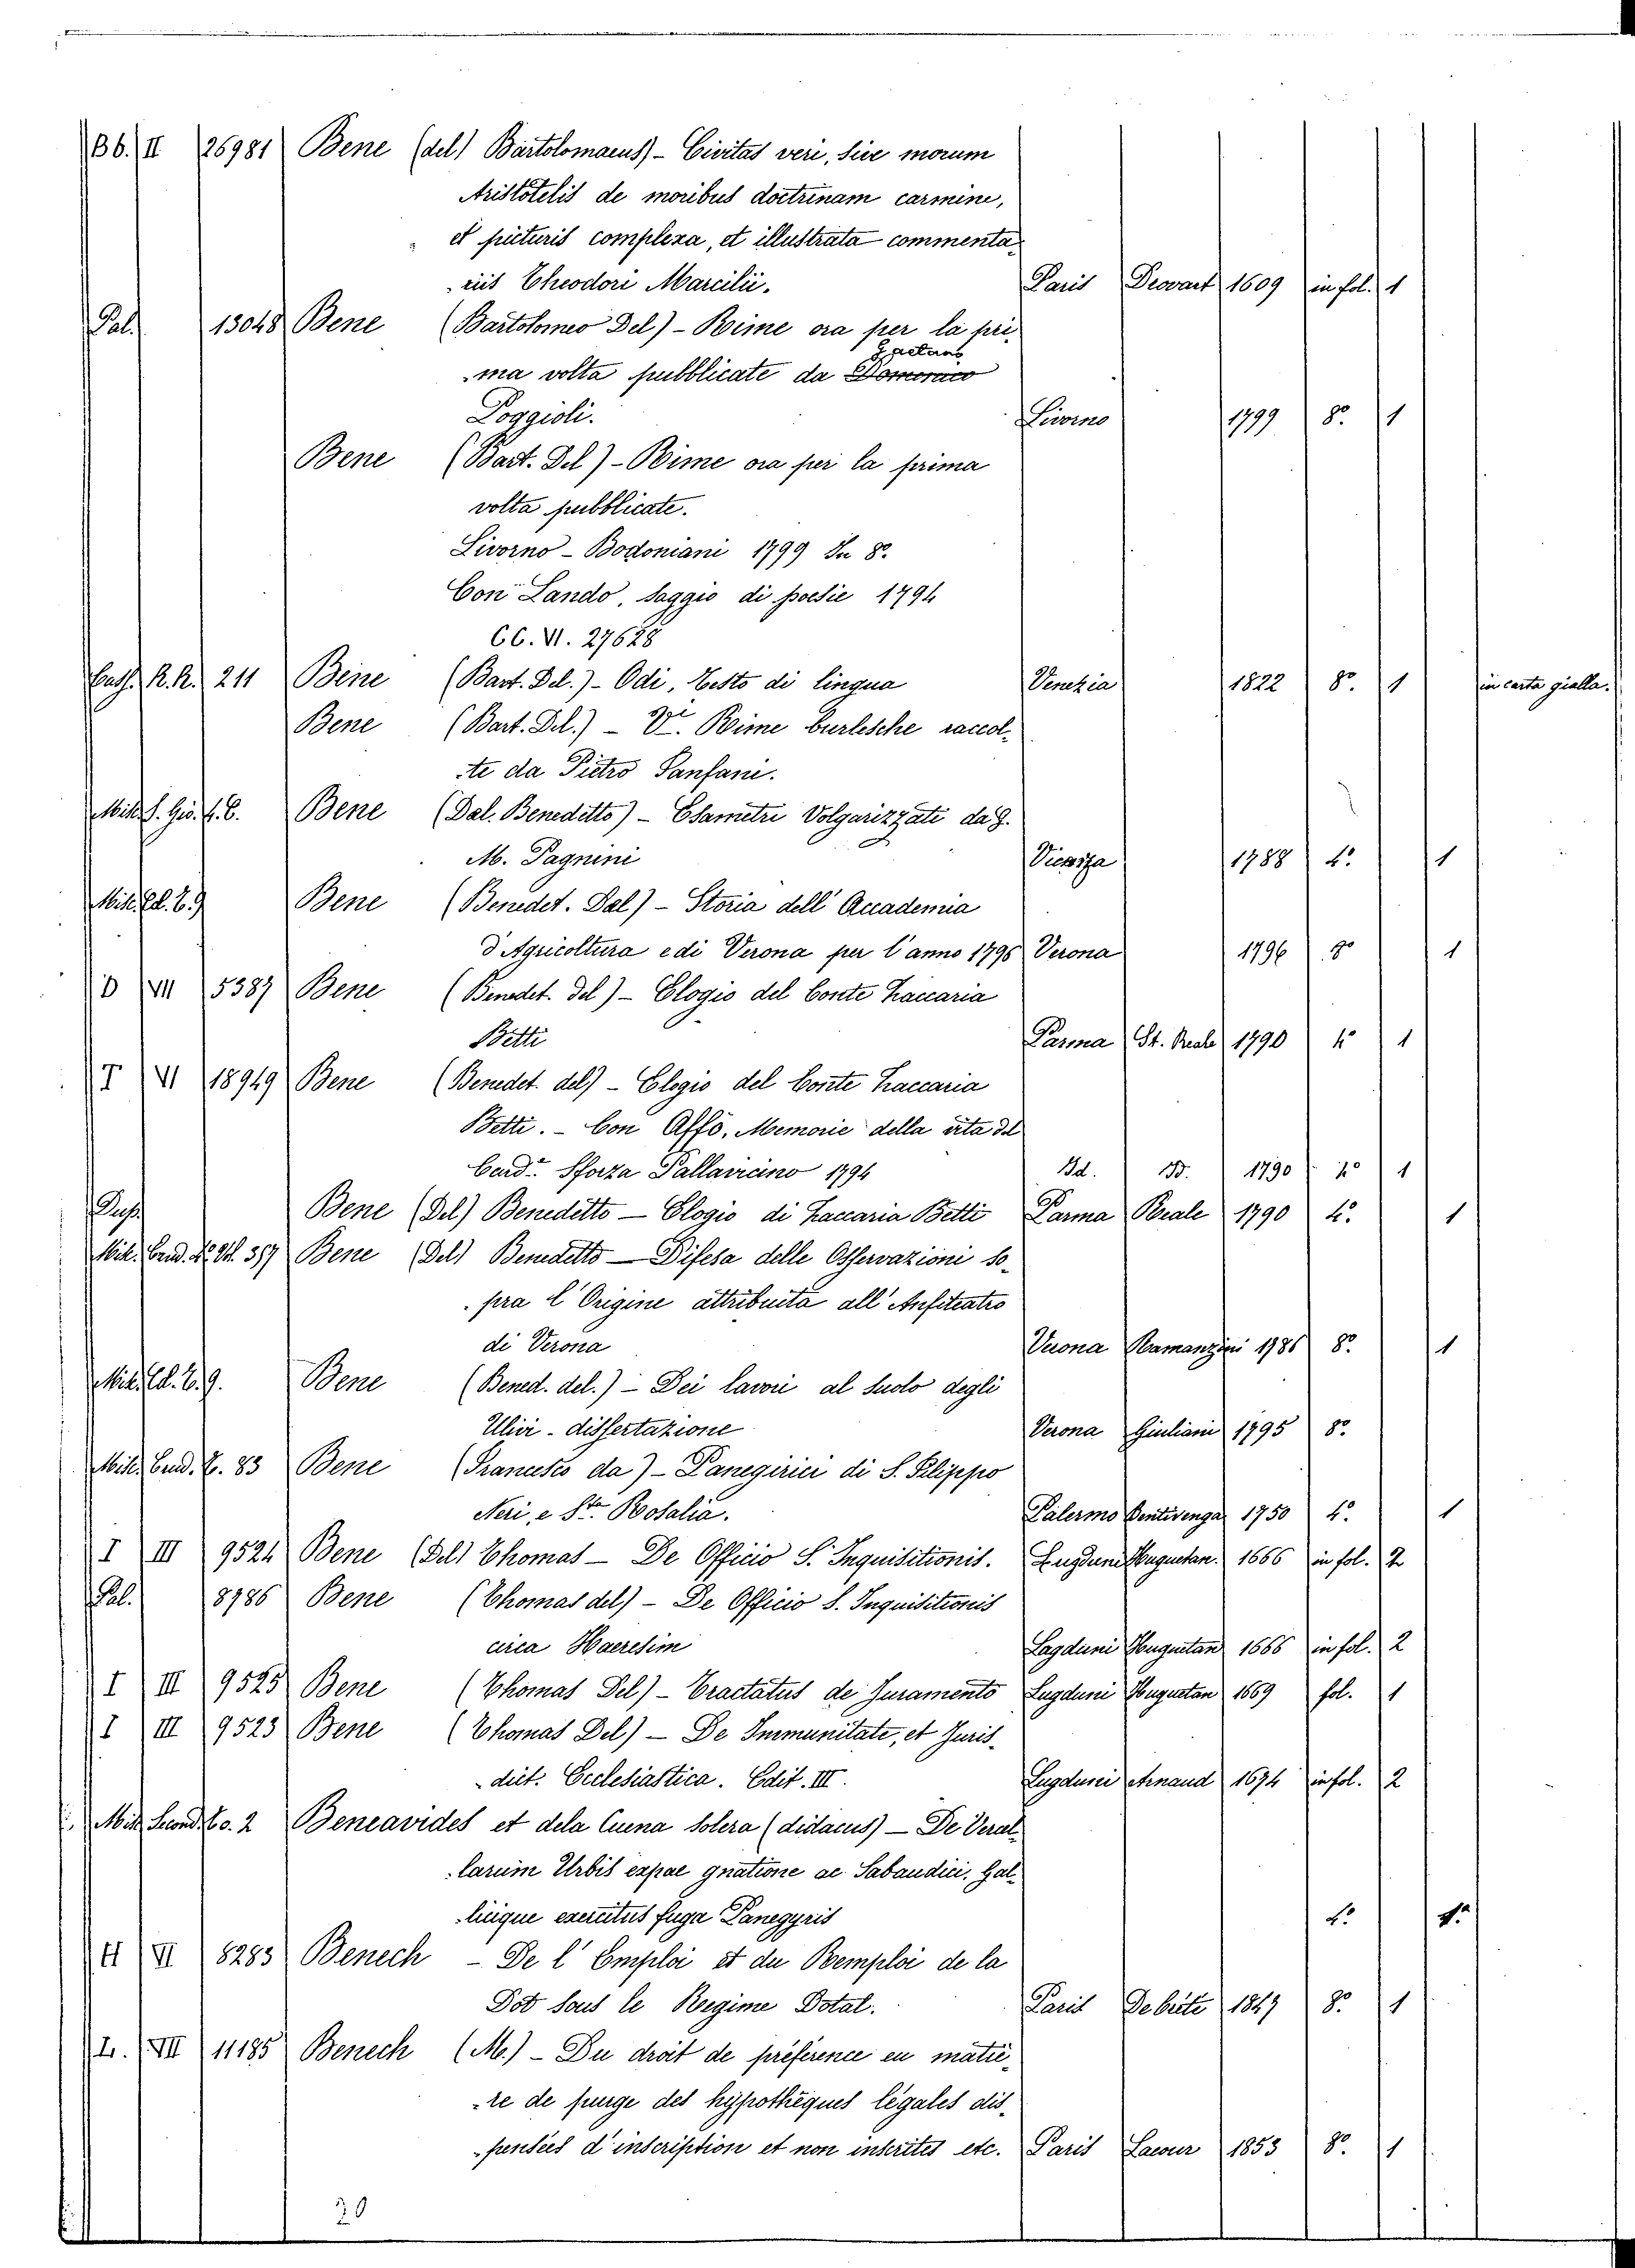 BB. II 26981 Bene (del) Bartolomaeus) - Civitas veri, sive morum
Aristotelis de moribus doctrinam carmine,
et picturis complexa, et illustrata commenta-
-riis Theodori Marcilii. Paris Drovart 1609 in fol. 1
Pal. 13048 Bene (Bartolomeo Del) - Rime ora per la pri-
Gaetano
-ma volta pubblicate da Domenico
Poggioli. Livorno 1799 8º 1
Bene (Bart. Del) - Rime ora per la prima
volta pubblicate.
Livorno - Bodoniani 1799 In 8º.
Con Lando, saggio di poesie 1794
CC. VI. 27628
R.R. 211 Bene (Bart. Del.) - Odi, Testo di lingua Venezia 1822 8º. 1 in carta gialla.
Bene (Bart. Del.) - Vi. Rime burlesche raccol-
-te da Pietro Fanfani.
Misc. S. Gio. f. C. Bene (Dal. Beneditto) - Esametri Volgarizzati da G.
M. Pagnini Vicenza 1788 4º 1
Misc. Ed. C. 9 Bene (Benedet. Dal) - Storia dell' Accademia
d'Agricoltura e di Verona per l'anno 1795 Verona 1796 8º 1
D VII 5387 Bene (Benedet. del) - Elogio del Conte Zaccaria
Betti Parma St. Reale 1790 4º 1
T VI 18949 Bene (Benedet. del) - Elogio del Conte Zaccaria
Betti. - Con Affò, Memorie della vita del
Card.e Sforza Pallavicino 1794 Id. ID. 1790 4º 1
Dup. Bene (Del) Beneditto - Elogio di Zaccaria Betti Parma Reale 1790 4º. 1
Misc. 317 Bene (Del) Benedetto - Difesa delle Osservazioni so-
-pra l'Origine attribuita all'Anfiteatro
di Verona Verona Ramanzini 1786 8º. 1
Misc. Ed. C. 9. Bene (Bened. del.) - Dei lavori al suolo degli
Ulivi - dissertazione Verona Giuliani 1795 8º
Misc. 83 Bene (Francesco da) - Panegirici di S. Filippo
Neri, e Sta. Rosalia. Palermo Bentivenga 1750 4º. 1
I III 9524 Bene (Del) Thomas - De Officio S. Inquisitionis. Lugduni Huguetan. 1666 in fol. 2
Pal. 8786 Bene (Thomas del) - De Officio S. Inquisitionis
circa Haeresim Lagduni Huguetan 1666 in fol. 2
I III 9525 Bene (Thomas Del) - Tractatus de Juramento Lugduni Huguetan 1669 fol. 1
I III 9523 Bene (Thomas Del) - De Immunitate, et Juris-
-dict. Ecclesiastica. Edit. III. Lugduni Arnaud 1674 in fol. 2
Misc. Beneavides et dela Cuena Solera (didacus) - De Vercel-
-larum Urbis expae gnatione ac Sabaudici, Gal-
-licique exercitus fuga Panegyris 4º
H VI 8283 Benech - De l'Emploi et du Remploi de la
Dot sous le Regime Dotal. Paris 1847 8º 1
L. VIII 11185 Benech (M.) - Du droit de préférence en matiè-
-re de purge des hypothèques légales dis-
-pensées d'inscription et non inscrites etc. Paris Lacour 1853 8º. 1
20